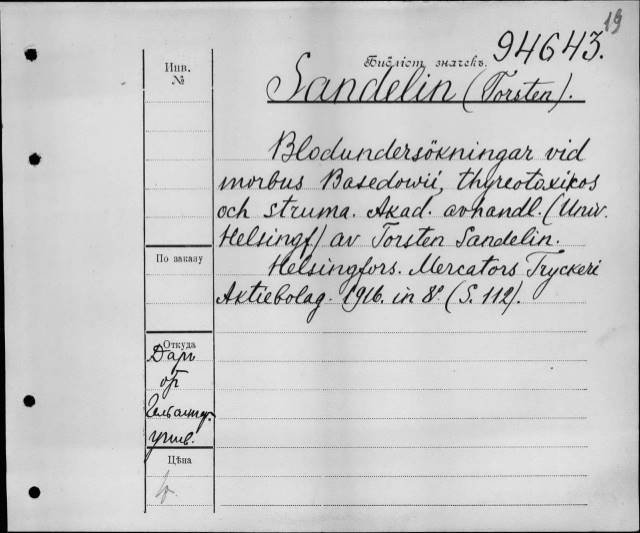 19
Библіст. значекъ. 94643.
Инв.
№
Sandelin (Torsten).
Blodundersökningar vid
morbus Basedowii, thyreotoxikos
och struma. Akad. avhandl. (Univ.
Helsingf.) av Torsten Sandelin.
По заказу
Helsingfors. Mercators Tryckeri
Aktiebolag. 1916. in 8°. (S. 112).
Откуда
Даръ
от
унив.
Цѣна